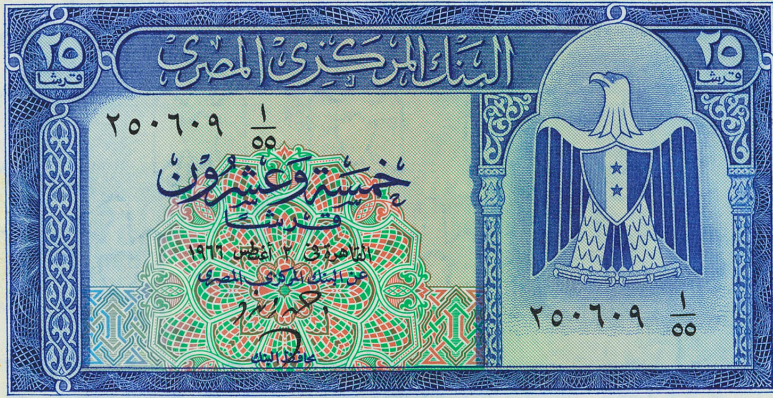 البنك المركزى المصرى
٢٥ قرشا
٢٥ قرشا
٢٥٠٦٠٩ ١/٥٥
خمسة وعشرون
قرشا
القاهرة فى ٢ أغسطس ١٩٦٦
عن البنك المركزى المصرى
محافظ البنك
٢٥٠٦٠٩ ١/٥٥